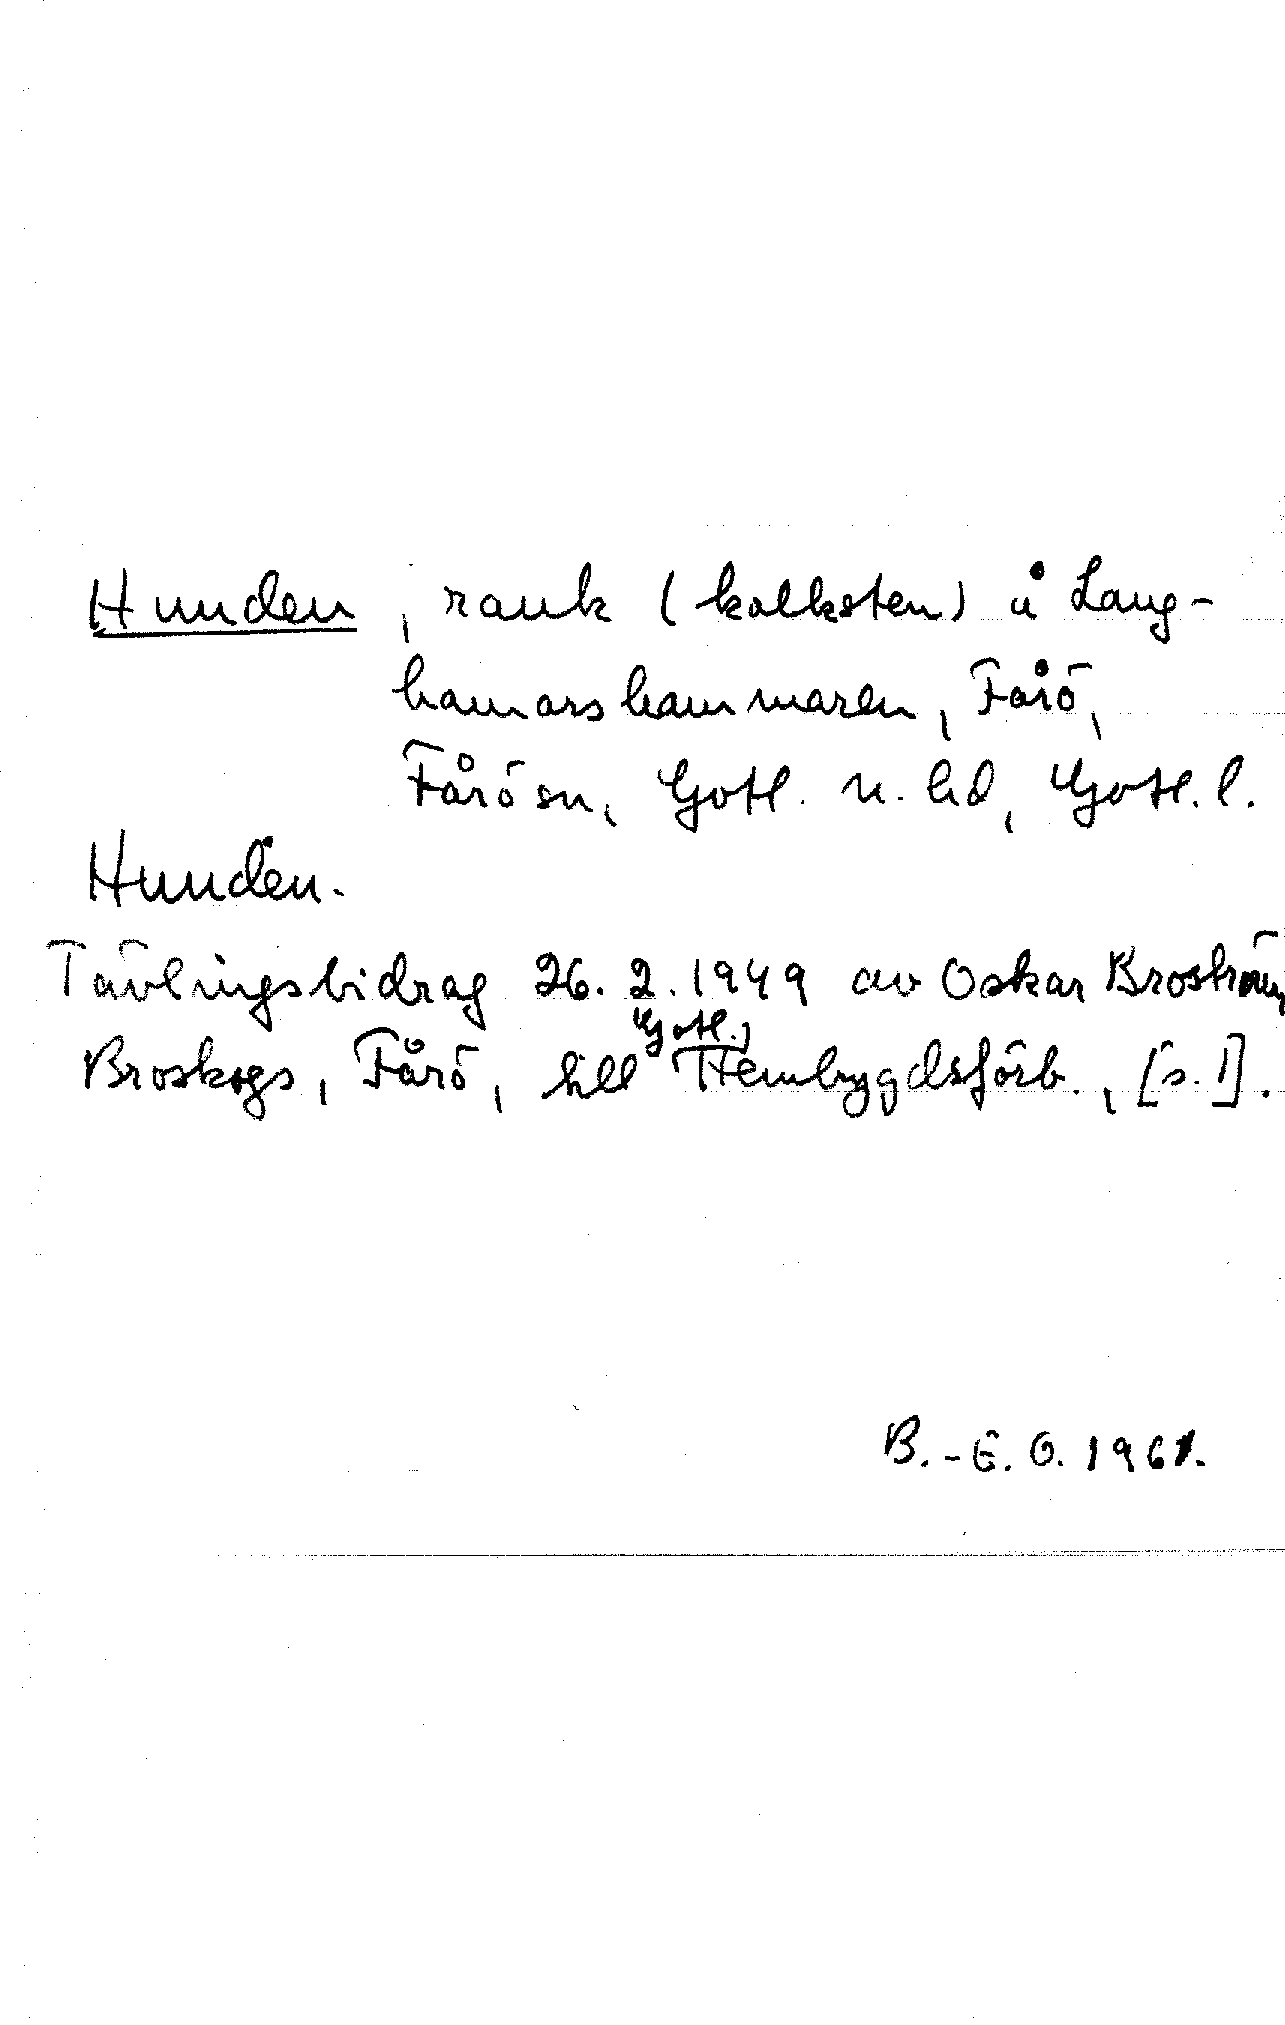 Hunden, rauk (kalksten) å Lang-
hamarshammaren, Fårö,
Fårö sn, Gotl. n. hd, Gotl. l.
Hunden.
Tävlingsbidrag 26.2.1949 av Oskar Broström,
Broskogs, Fårö, till Gotl. Hembygdsförb., [s. 1].
B.-E. O. 1961.